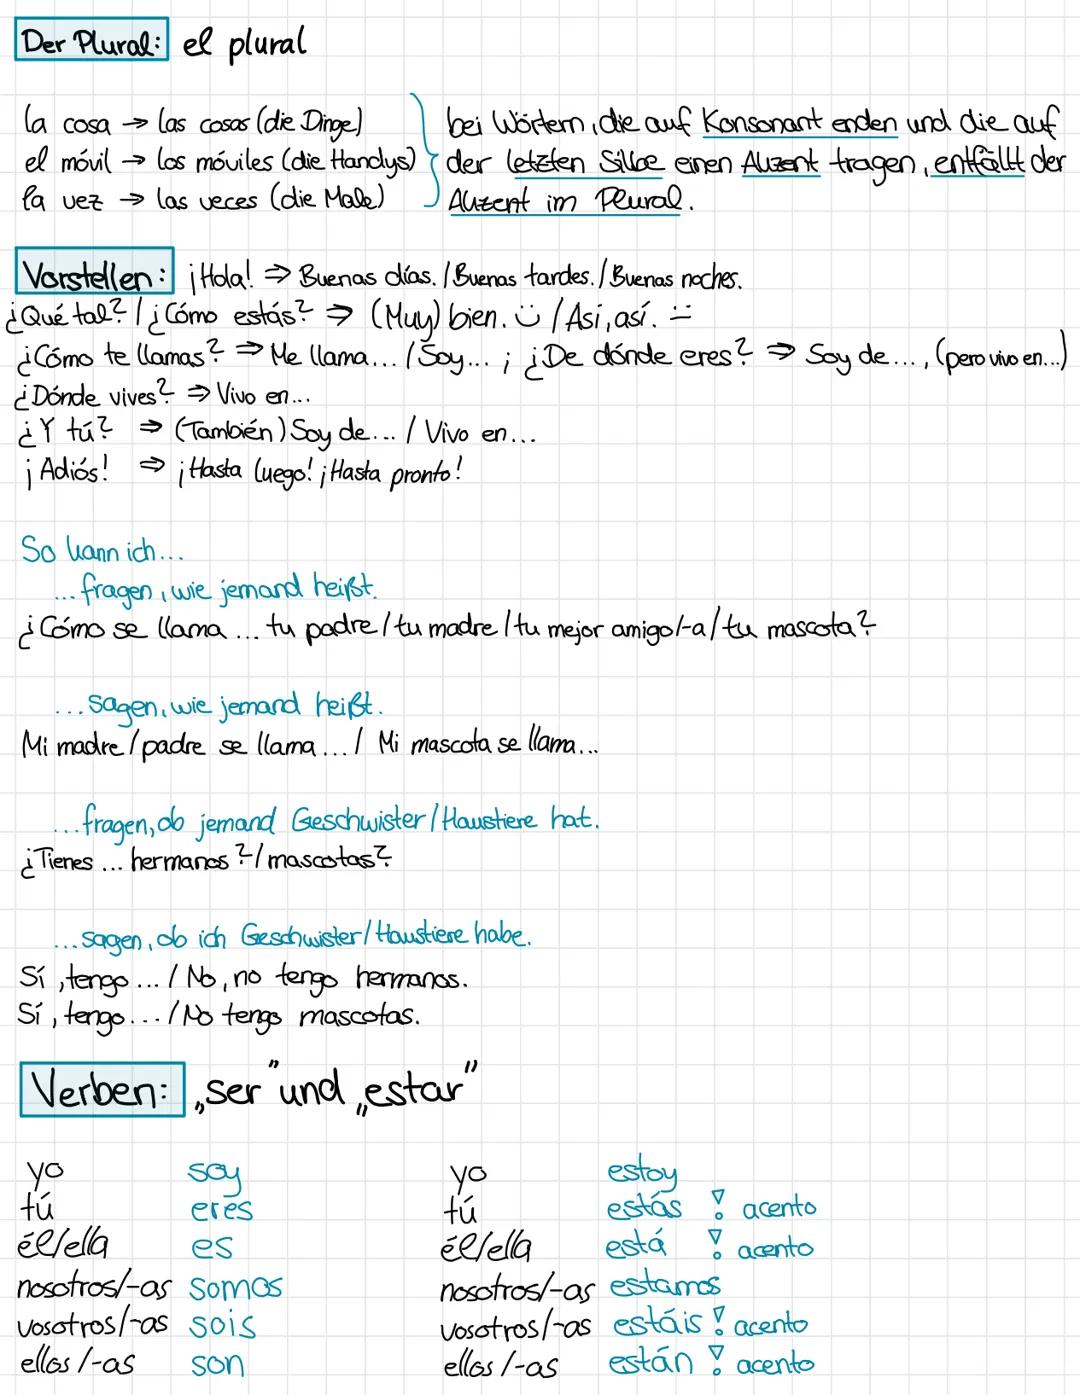 Der Plural: el plural
la cosa → las cosas (die Dinge)
el móvil → los móviles (die Handys)
la vez → las veces (die Male)
bei Wörtern, die auf Konsonant enden und die auf
der letzten Silbe einen Akzent tragen, entfällt der
Akzent im Plural.
Vorstellen: ¡Hola! ⇒ Buenas días. / Buenas tardes. / Buenas noches.
¿Qué tal? / ¿Cómo estás? ⇒ (Muy) bien. / Asi, así.
¿Cómo te llamas? ⇒ Me llama... / Soy... ; ¿De dónde eres? ⇒ Soy de..., (pero vivo en...)
¿Dónde vives? ⇒ Vivo en...
¿Y tú? ⇒ (También) Soy de... / Vivo en...
¡Adiós! ⇒ ¡Hasta luego! ¡Hasta pronto!
So kann ich...
...fragen, wie jemand heißt.
¿Cómo se llama ... tu padre / tu madre / tu mejor amigo/-a / tu mascota?
...sagen, wie jemand heißt.
Mi madre / padre se llama... / Mi mascota se llama...
...fragen, ob jemand Geschwister / Haustiere hat.
¿Tienes ... hermanos? / mascotas?
...sagen, ob ich Geschwister / Haustiere habe.
Sí, tengo ... / No, no tengo hermanos.
Sí, tengo... / No tengo mascotas.
Verben: „ser" und „estar"
yo soy
tú eres
él/ella es
nosotros/-as somos
vosotros/-as sois
ellos/-as son
yo estoy
tú estás ! acento
él/ella está ! acento
nosotros/-as estamos
vosotros/-as estáis ! acento
ellos/-as están ! acento